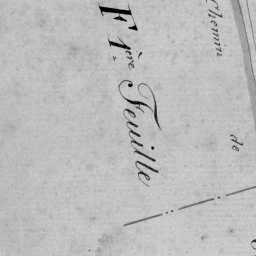 F 1ère Feuille
Chemin
de